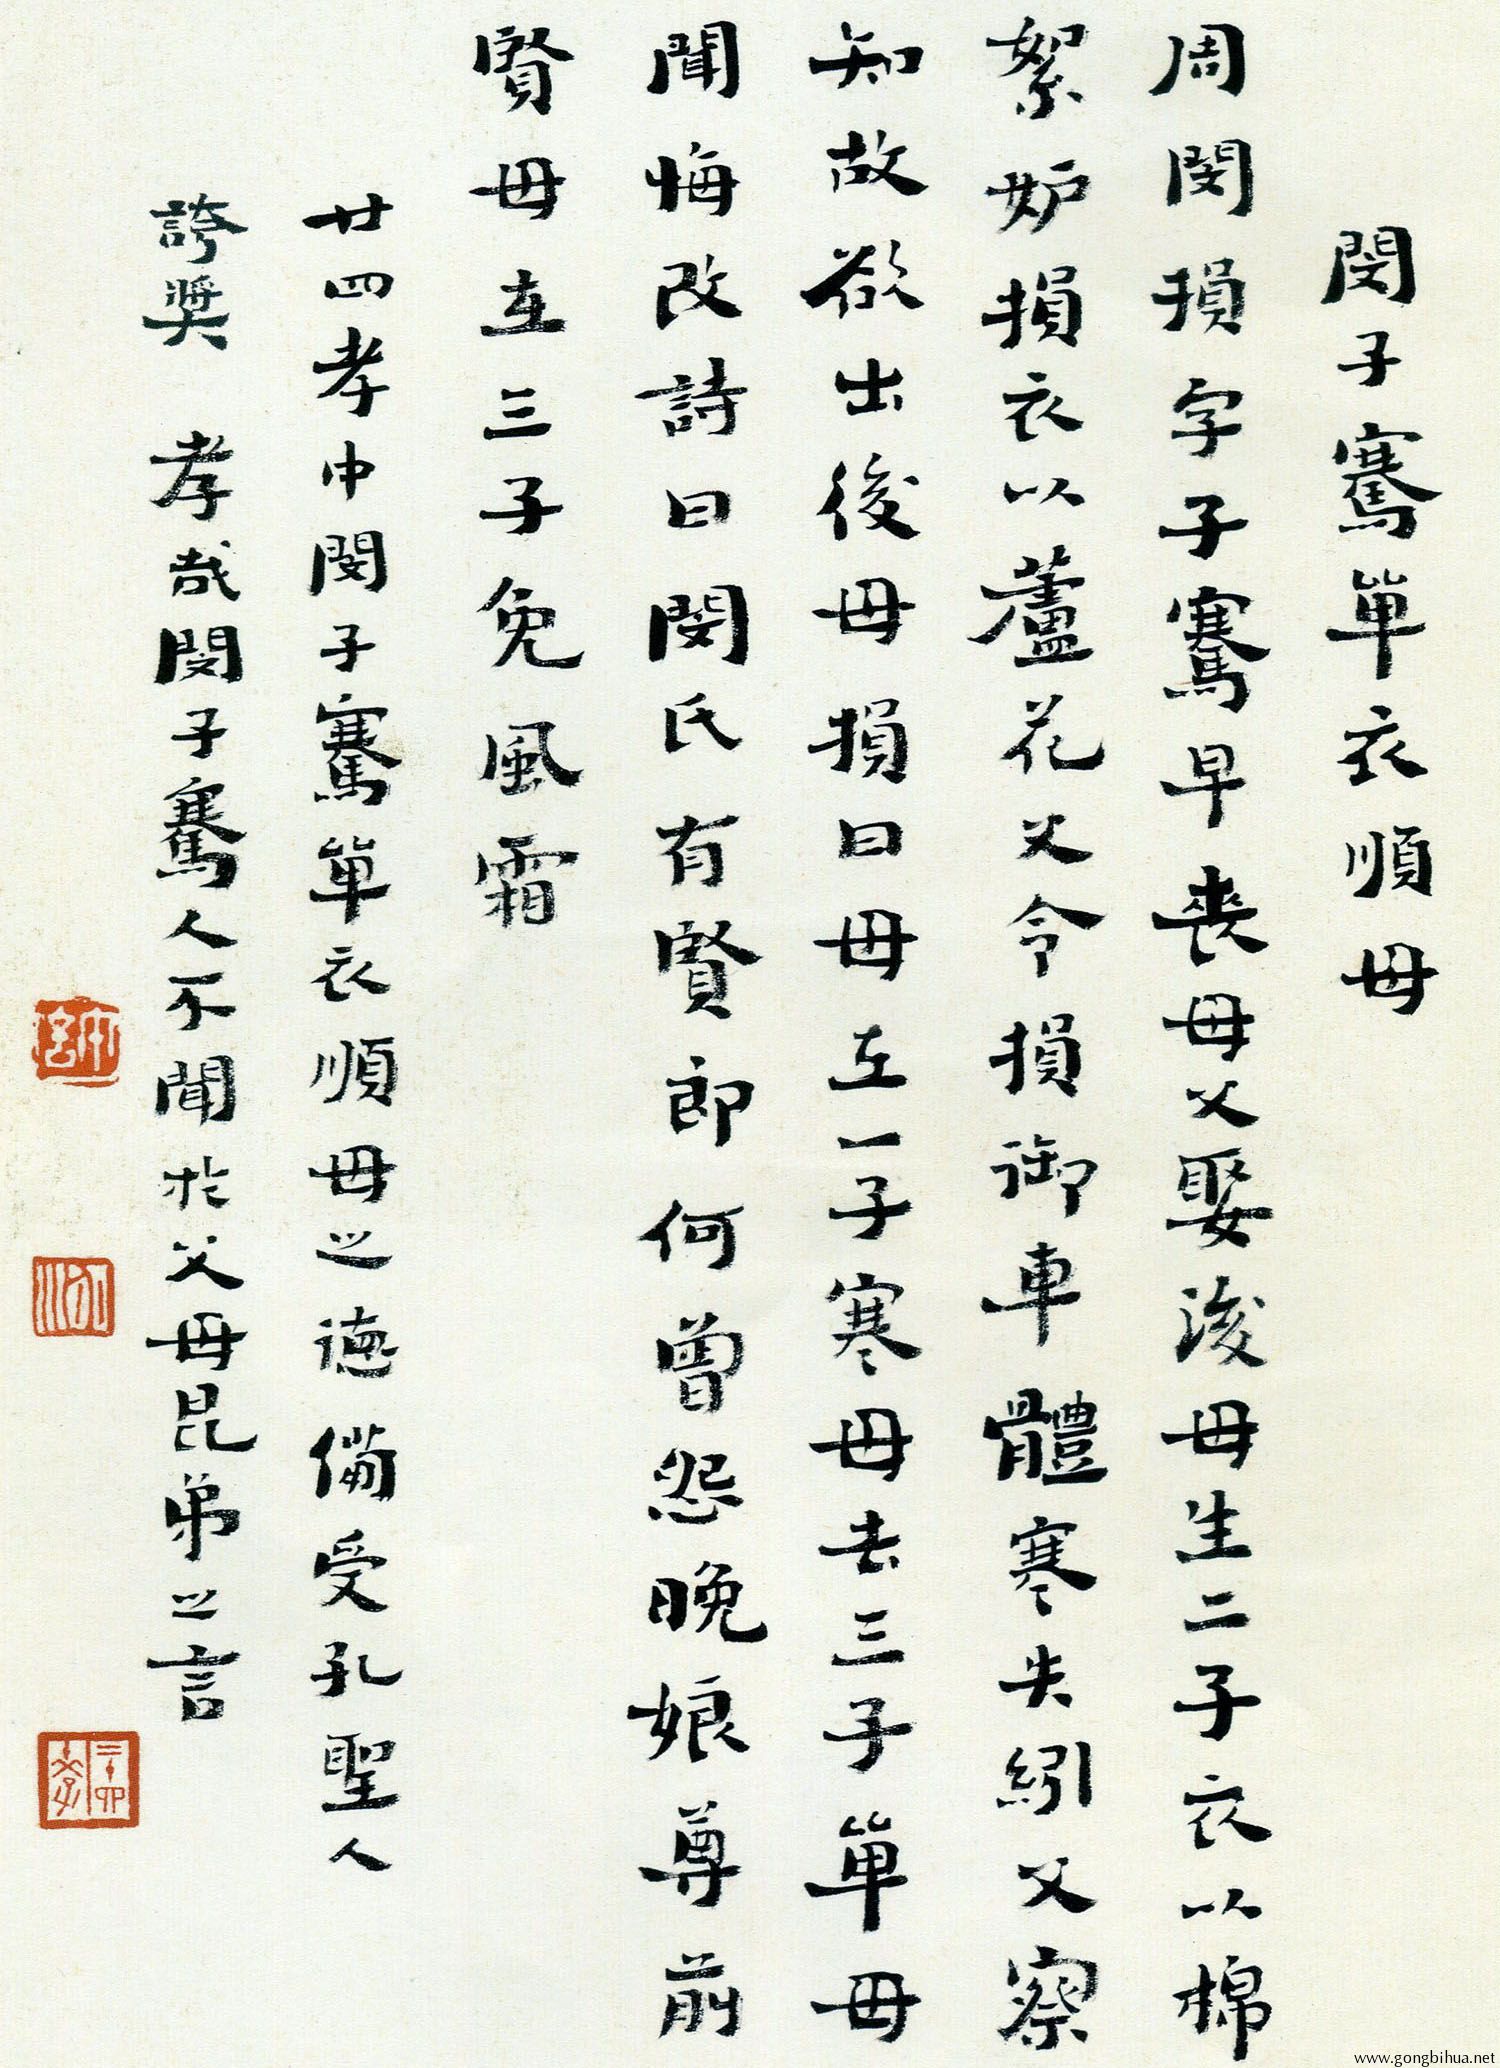 閔子騫單衣順母
周閔損字子騫早喪母父娶後母生二子衣以棉
絮妒損衣以蘆花父令損御車體寒失紖父察
知故欲出後母損曰母在一子寒母去三子單母
聞悔改詩曰閔氏有賢郎何曾怨晚娘尊前
賢母在三子免風霜
廿四孝中閔子騫單衣順母之德備受孔聖人
誇奬 孝哉閔子騫人不聞於父母昆弟之言
www.gongbihua.net